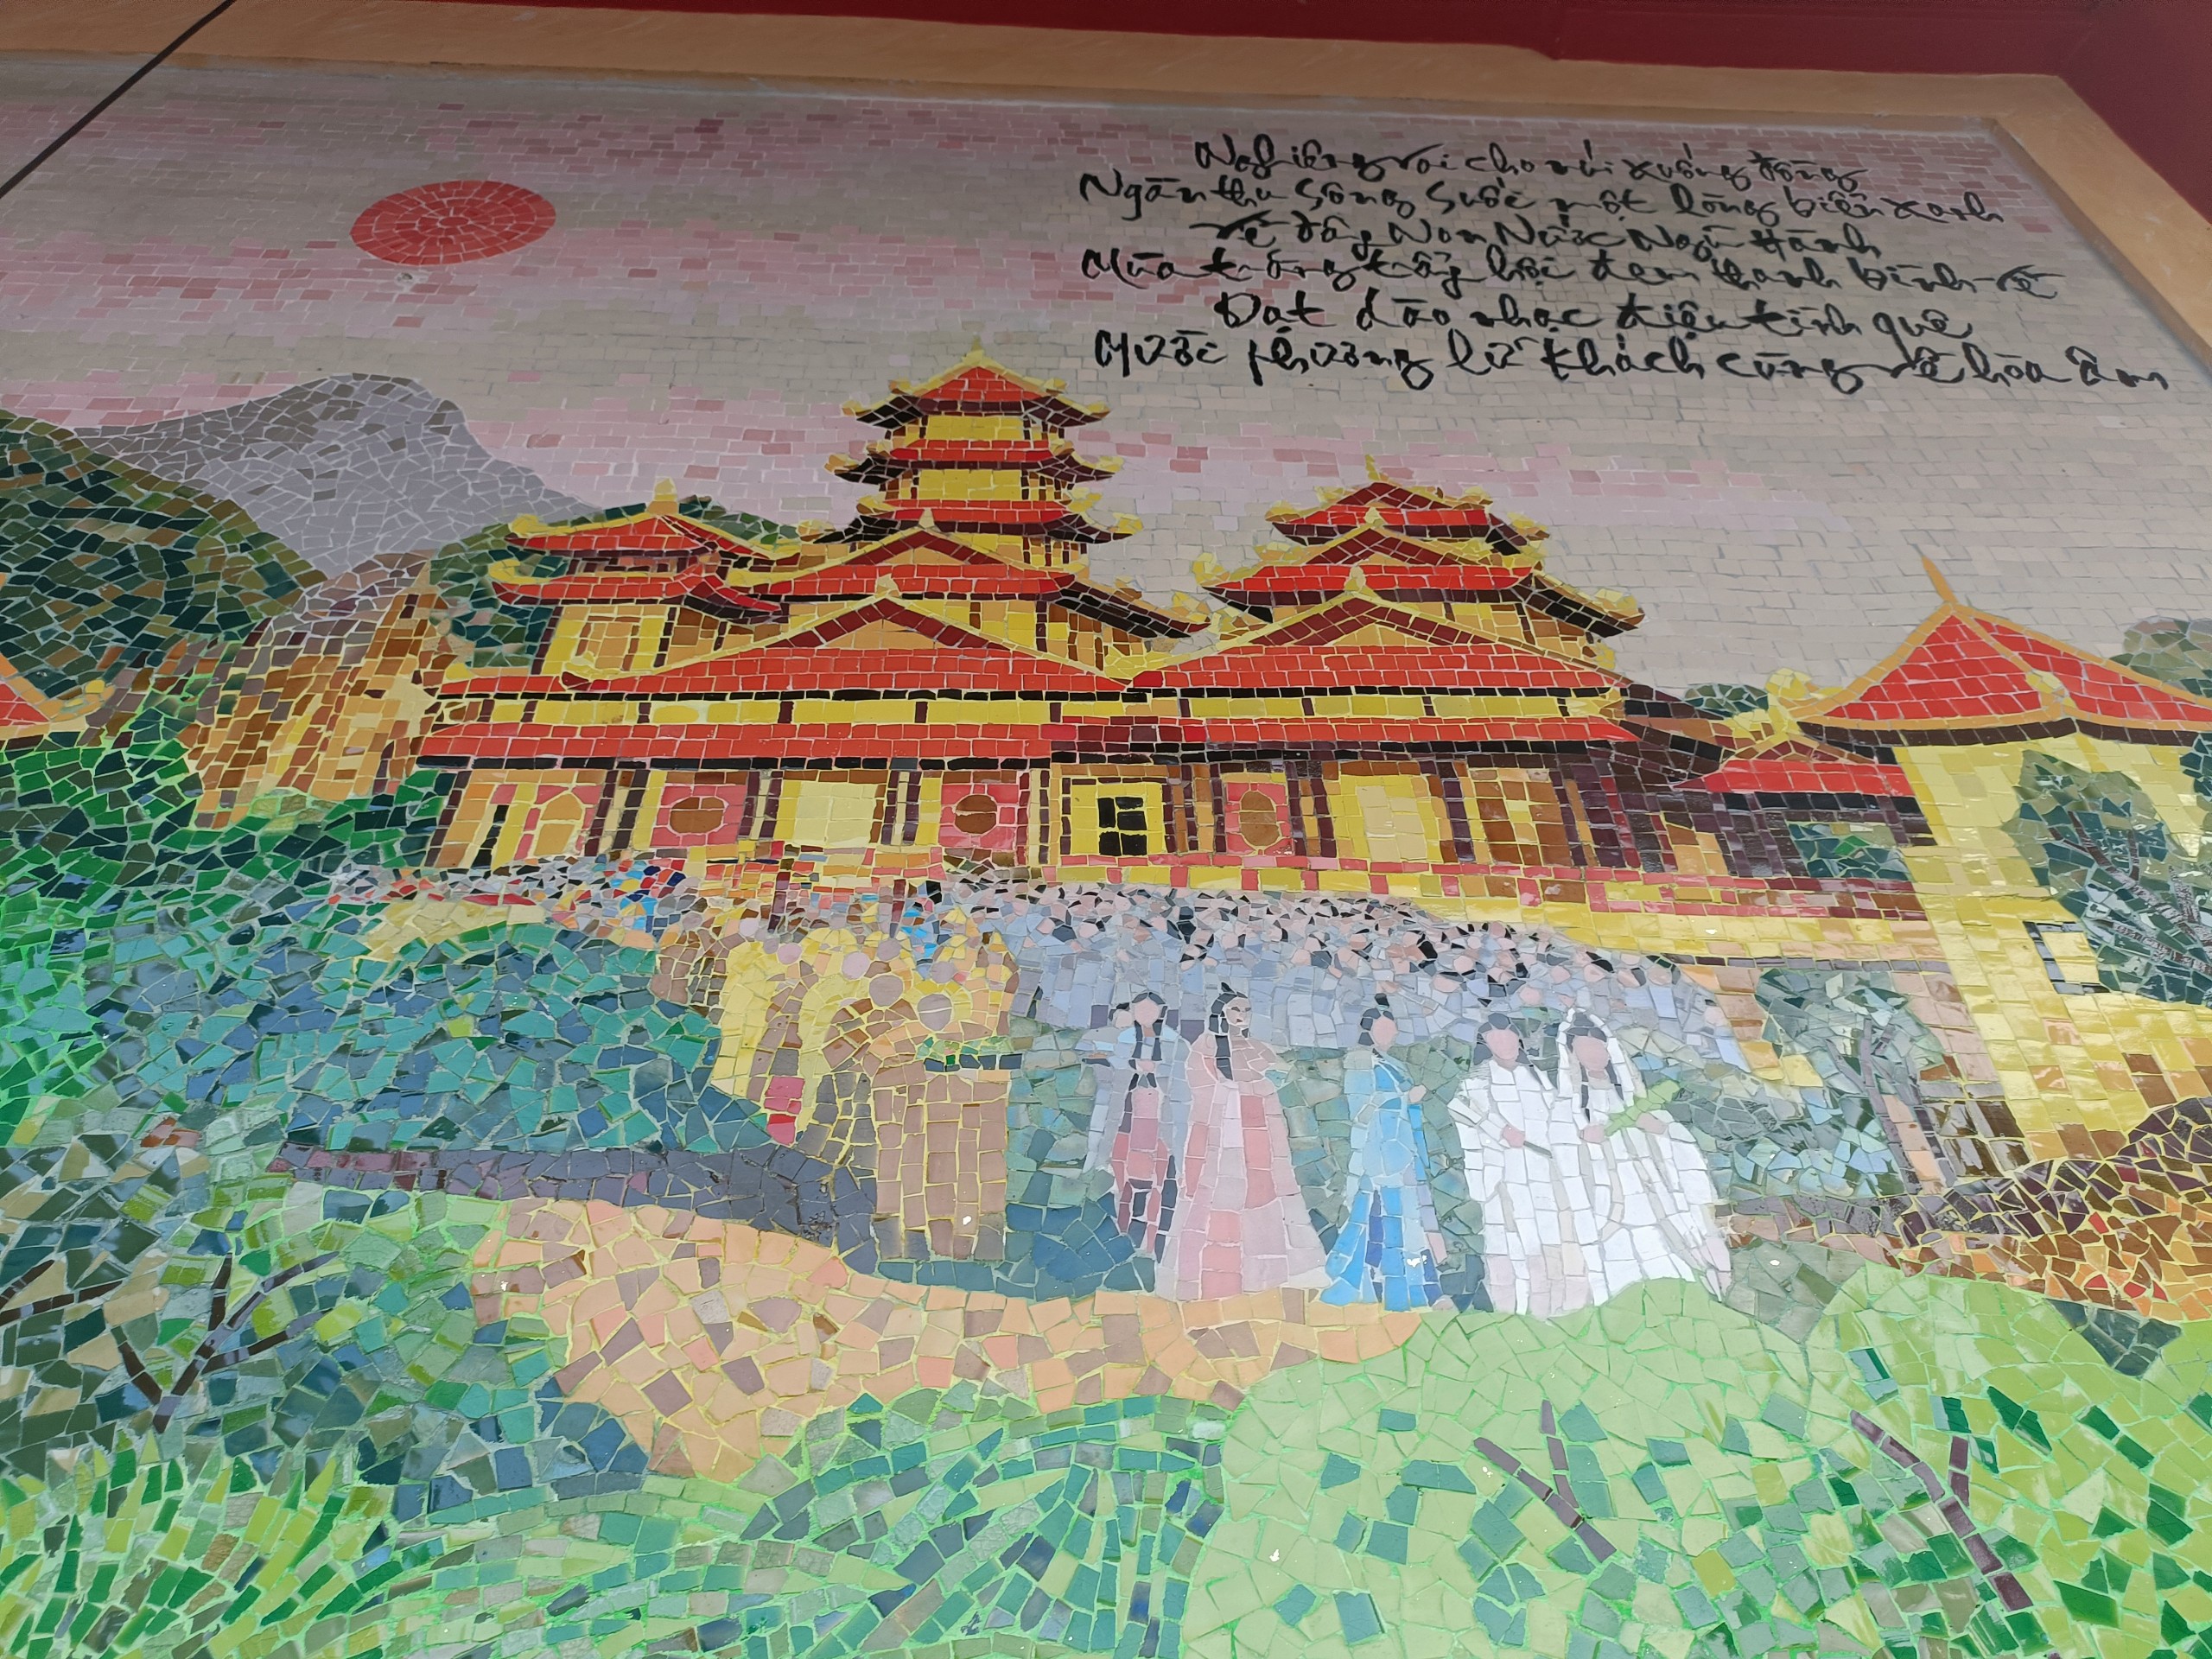 Nghiêng vai cho núi xuống đồng
Ngàn thu sông suối một lòng biển xanh
Về đây Non Nước Ngũ Hành
Mùa trăng trẩy hội đem thanh bình về
Dạt dào nhạc điệu tình quê
Mười phương lữ khách cùng về hòa âm